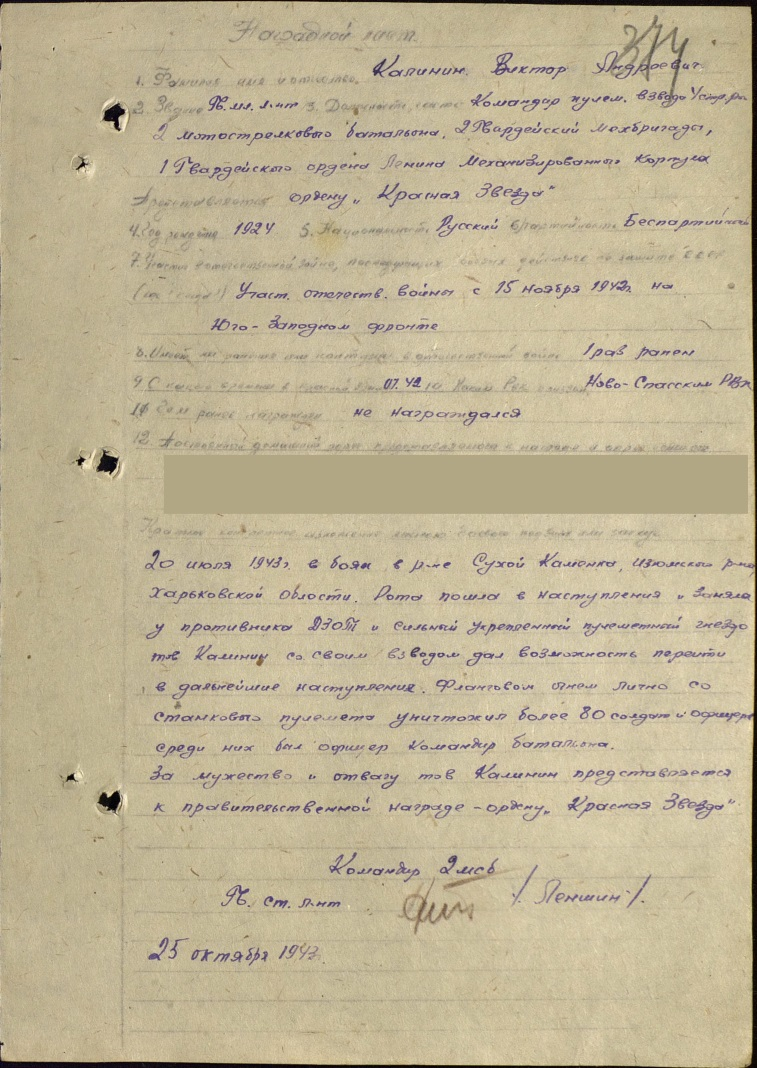 Наградной лист.
374
1. Фамилия имя и отчество. Калинин Виктор Андреевич.
2. Звание Гв. мл. л-нт 3. Должность, часть Командир пулем. взвода
2 мотострелкового батальона, 2 Гвардейский мехбригады,
1 Гвардейского ордена Ленина Механизированного Корпуса
представляется ордену „Красная Звезда“
4. Год рождения 1924 5. Национальность Русский 6 партийность Беспартийный
7. Участие в отечественной войне, последующих боевых действиях по защите СССР
Участ. отечеств. войны с 15 ноября 1942г. на
Юго-Западном фронте
8. Имеет ли ранения или контузии в отечественной войне 1 раз ранен
9. С какого времени в красной 07.42 10 Каким Рвк призван Ново-Спасским РВК
11 Чем ранее награжден не награждался
12. Постоянный домашний адрес представляемого к награде и адрес
Краткое конкретное изложение личного боевого подвига или заслуг.
20 июля 1943г. в боях в р-не Сухой Каменка, Изюмского р-на,
Харьковской области. Рота пошла в наступления и заняла
у противника ДЗОТ и сильный укрепленный пулеметный гнездо
тов Калинин со своим взводом дал возможность перейти
в дальнейшие наступления. Фланговом огнем лично со
станковыо пулемета уничтожил более 80 солдат и офицеров
среди них был офицер командир батальона.
За мужество и отвагу тов Калинин представляется
к правительственной награде – ордену „Красная Звезда“
Командир 2 мсб
Гв. ст. л-нт /Леншин/.
25 октября 1943г.